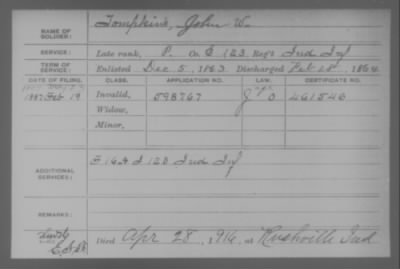 NAME OF SOLDIER: Tompkins, John W.
SERVICE: Late rank, P. Co. E 123, Reg't Ind Inf
TERM OF SERVICE: Enlisted Dec 5, 1863 Discharged Feb 18, 1864
DATE OF FILING. CLASS. APPLICATION NO. LAW. CERTIFICATE NO.
1887 Feb 19 Invalid, 598767 461546
Widow,
Minor,
ADDITIONAL SERVICES: F 16 & I 120 Ind Inf
REMARKS:
Died Apr 28, 1916, at Rushville Ind